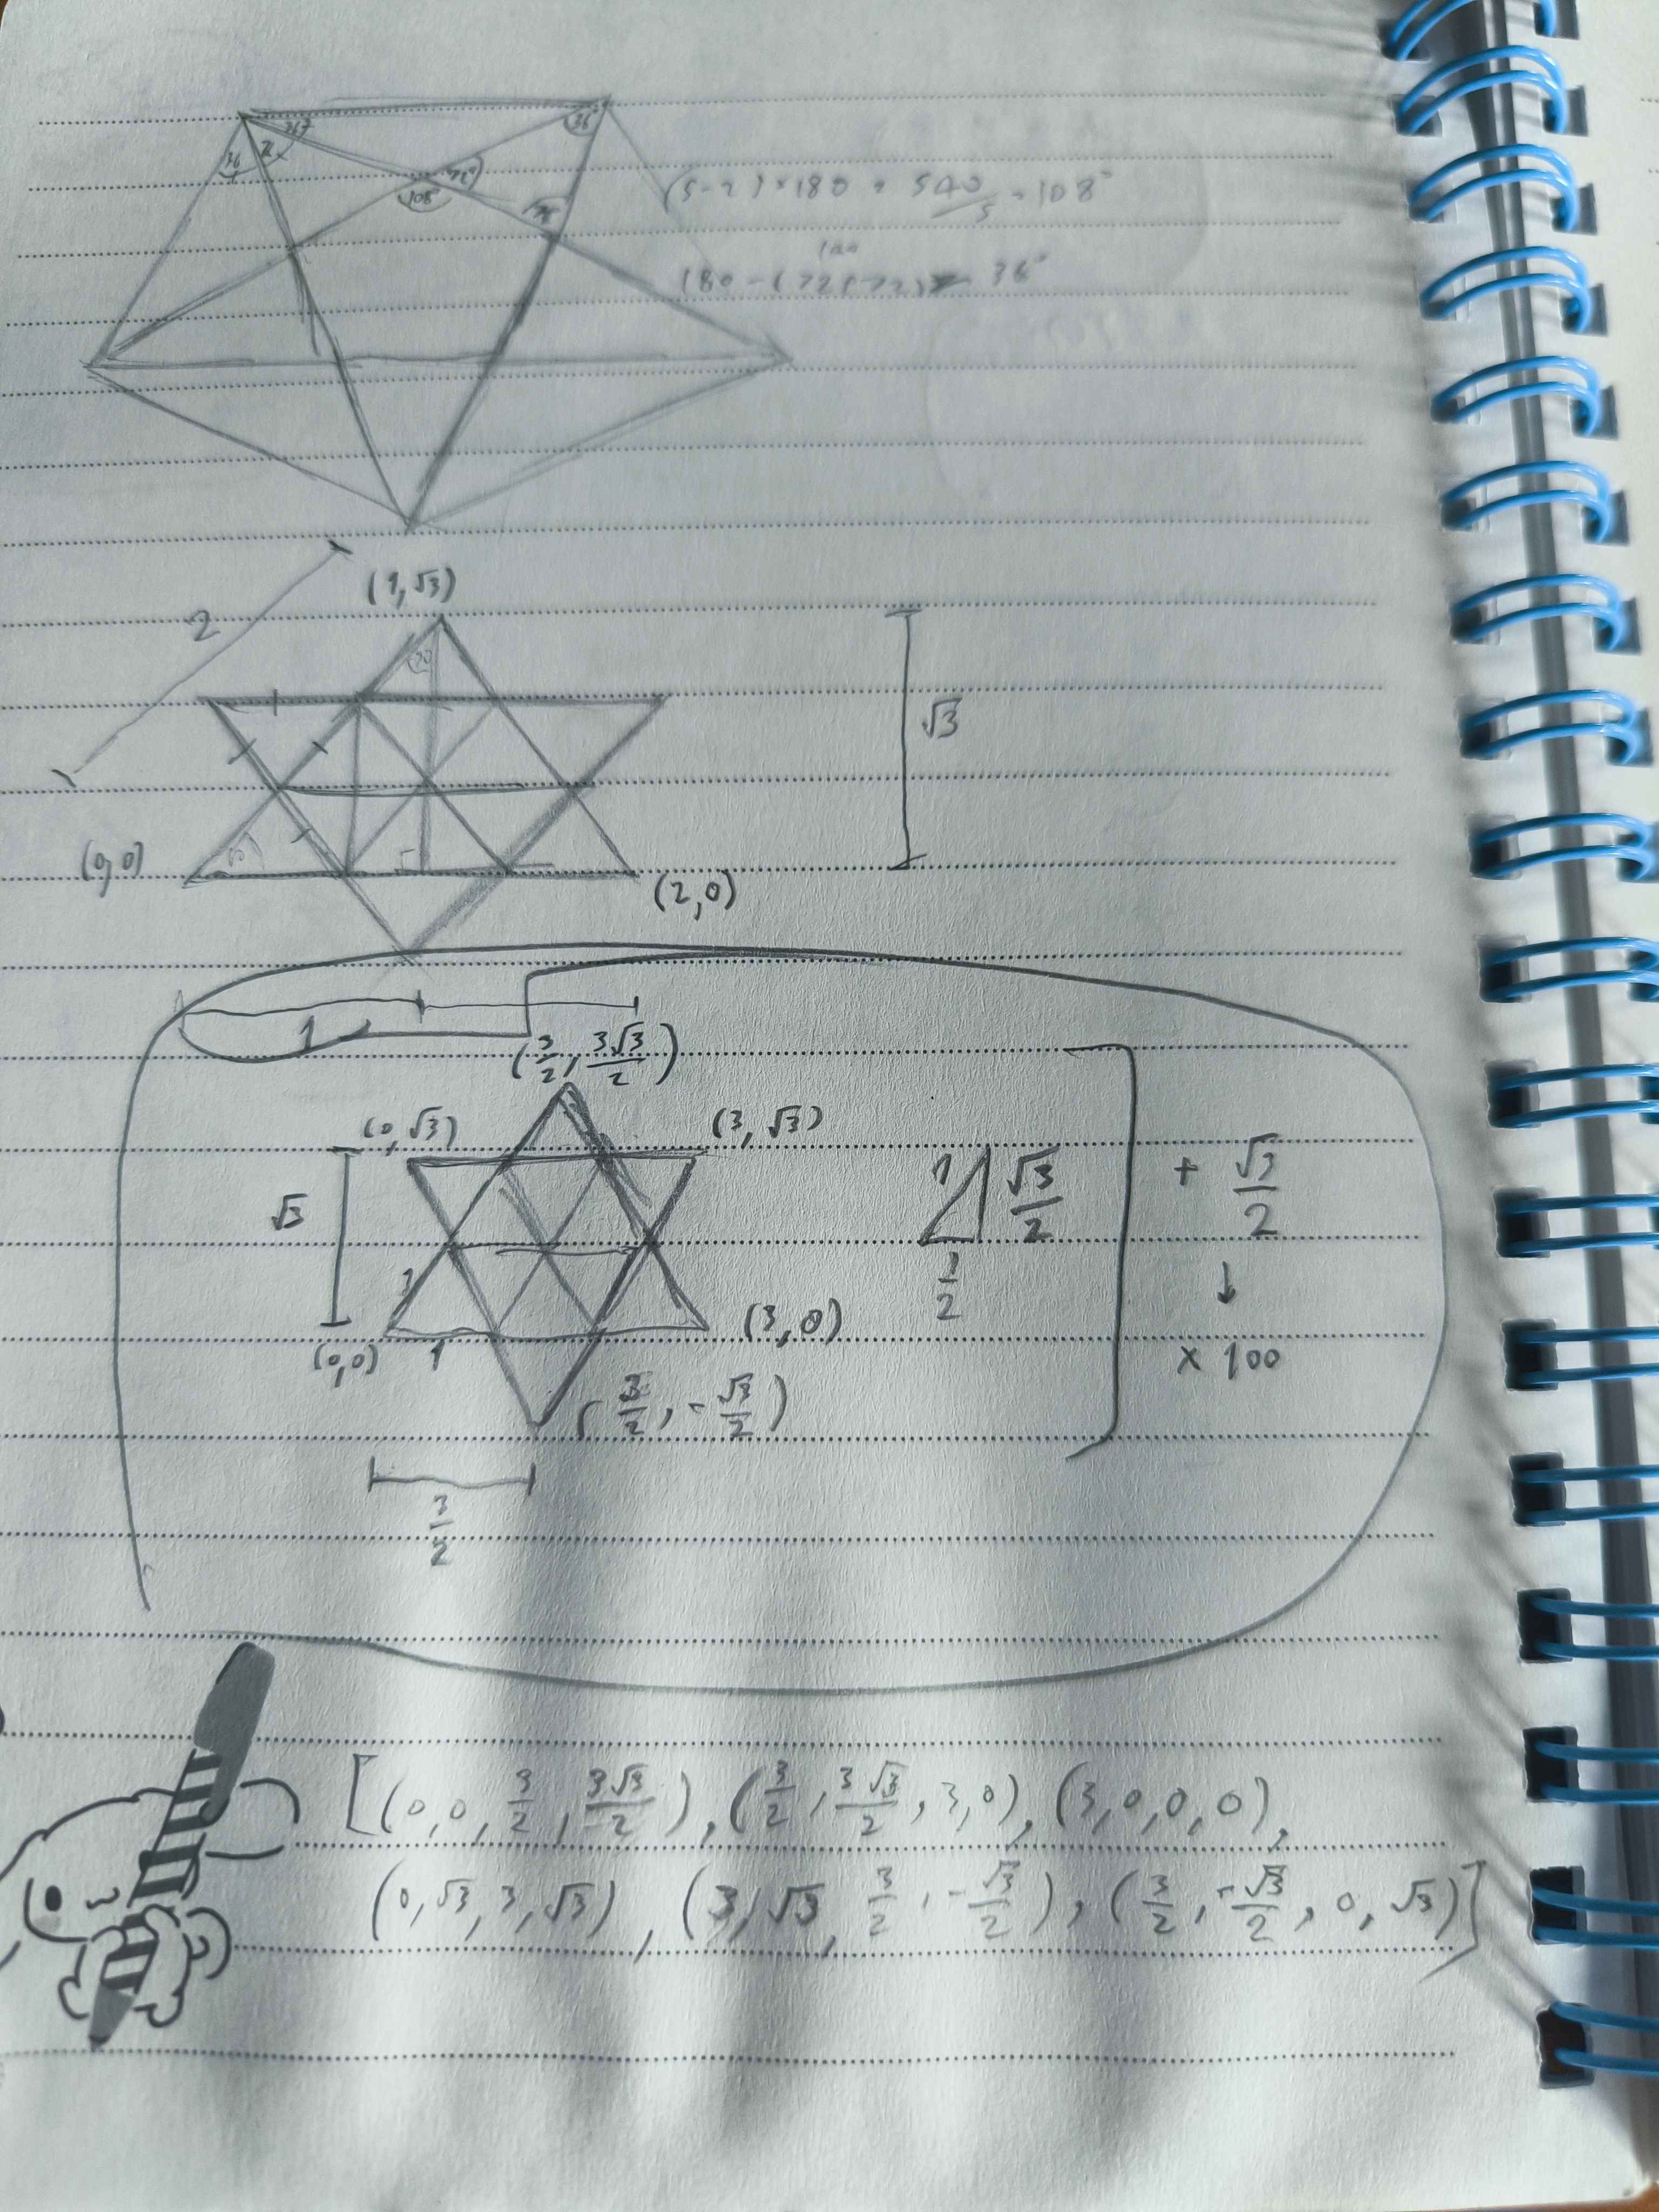 36°
108°
(5-2)×180 = 540/5 = 108°
180-(72+72) = 36°
2
(1,√3)
√3
(0,0)
(2,0)
1
(3/2, 3√3/2)
(0,√3)
(3,√3)
√3
1
√3/2
+ √3/2
1/2
↓
1
(0,0)
1
(3,0)
× 100
(3/2, -√3/2)
3/2
[(0,0,3/2,3√3/2),(3/2,3√3/2,3,0),(3,0,0,0),
(0,√3,3,√3),(3,√3,3/2,-√3/2),(3/2,-√3/2,0,√3)]